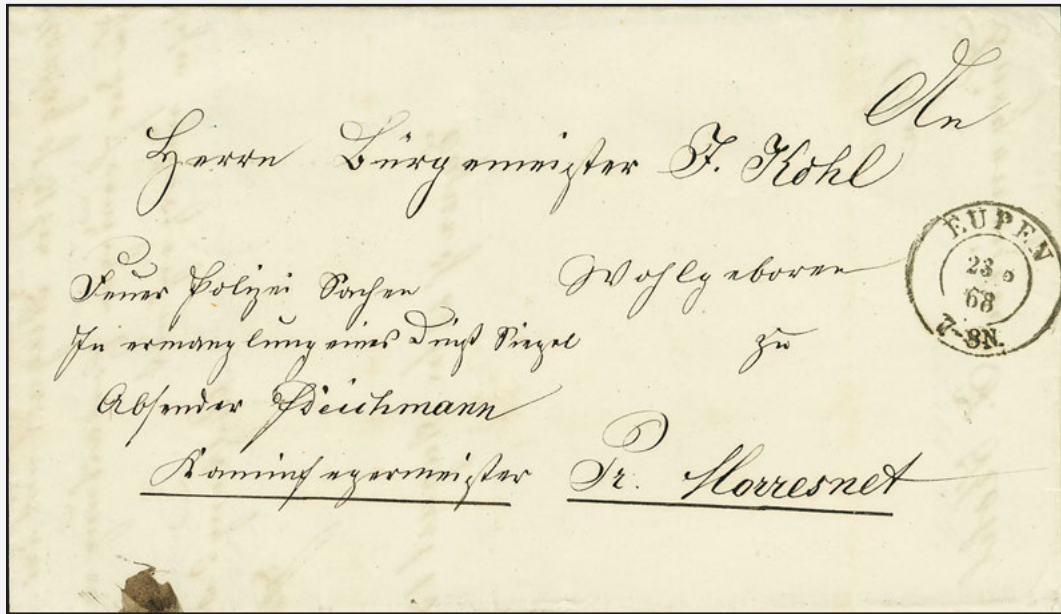 An
Herrn Bürgemeister F. Kohl
Wohlgeboren
zu
Pr. Morresnet
Feuer Polizei Sachen
In ermanglung eines Dinst Siegel
Absender Deichmann
Kaminfegermeister
EUPEN
23
68
7-8N.